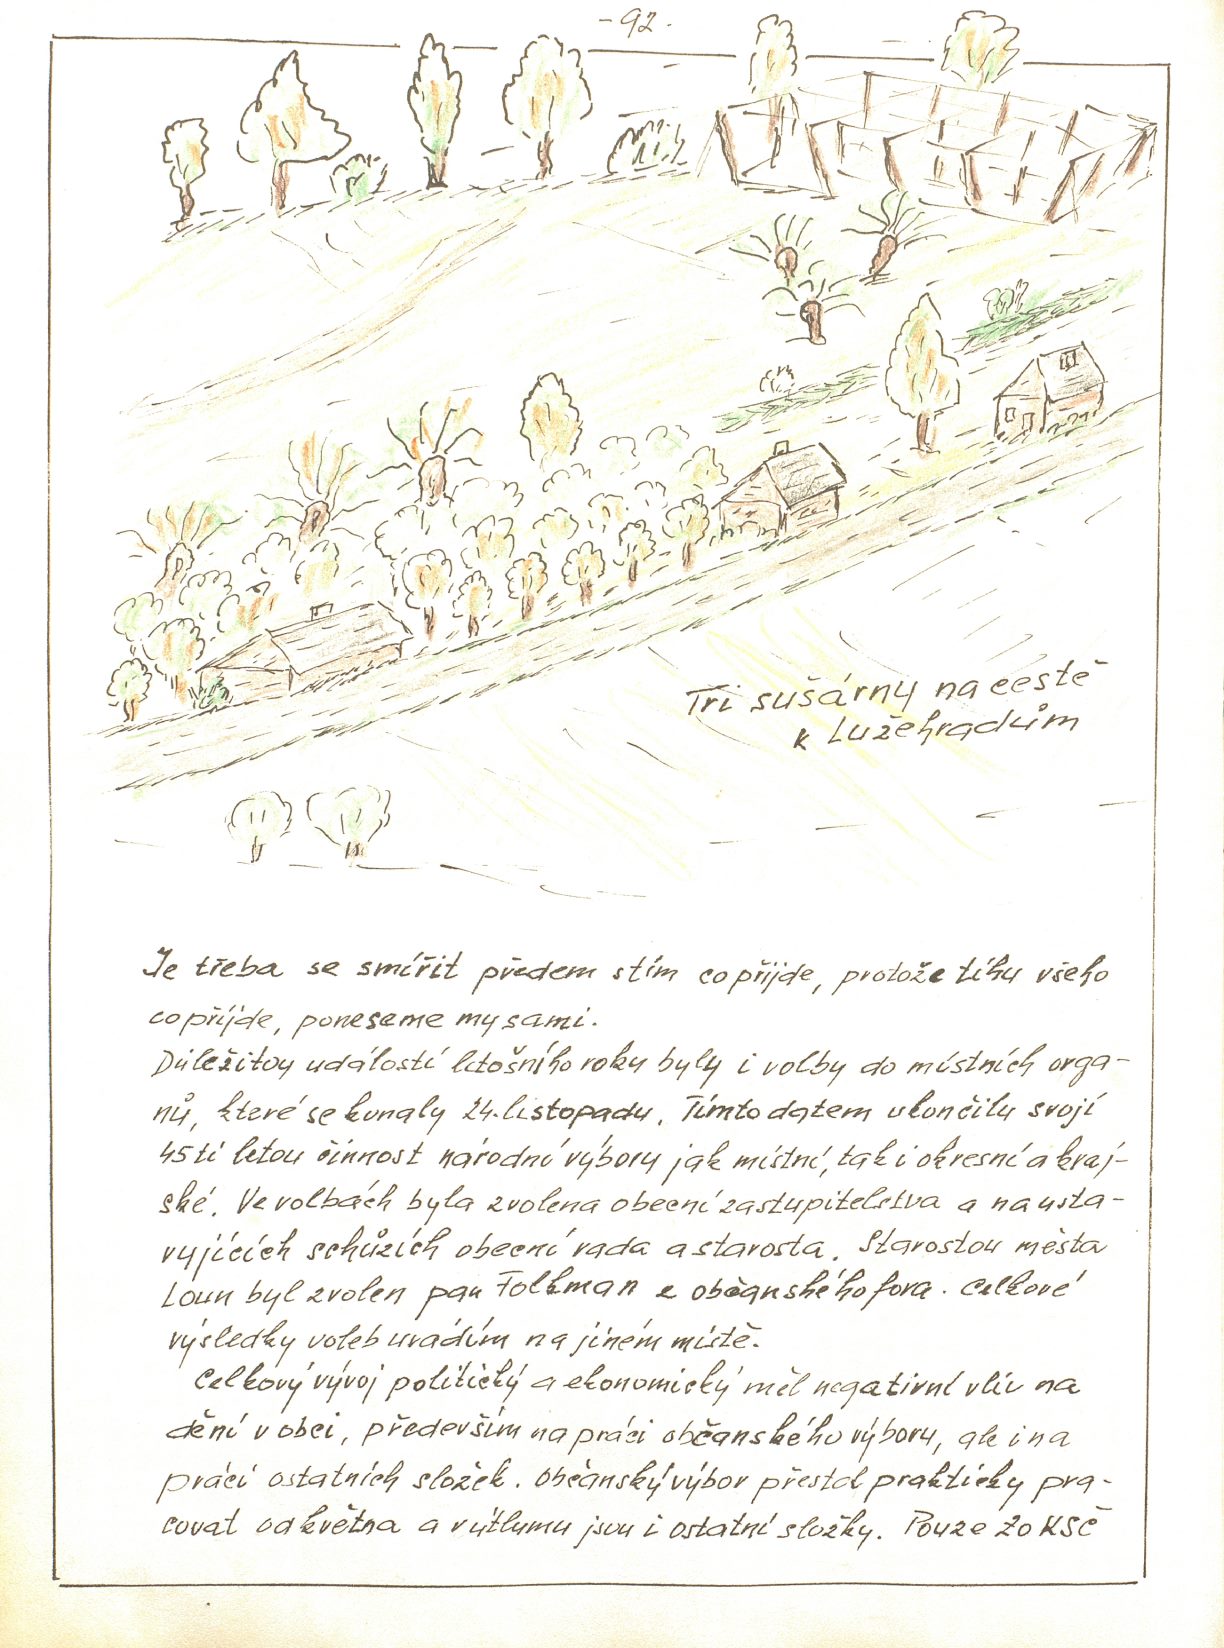 -92.
Tři sušárny na cestě
k Lužehradům
Je třeba se smířit předem stím co přijde, protože tíhu všeho
co příjde, poneseme my sami.
Důležitou událostí letošního roku byly i volby do místních orga-
nů, které se konaly 24. listopadu. Tímto datem ukončily svojí
45ti letou činnost národní výbory jak místní, tak i okresní a kraj-
ské. Ve volbách byla zvolena obecní zastupitelstva a na usta-
vujících schůzích obecní rada a starosta. Starostou města
Loun byl zvolen pan Folkman z občanského fora. Celkové
výsledky voleb uvádím na jiném místě.
Celkový vývoj politický a ekonomický měl negativní vliv na
dění v obci, především na práci občanského výboru, ale i na
práci ostatních složek. Občanský výbor přestal prakticky pra-
covat od května a v útlumu jsou i ostatní složky. Pouze ZO KSČ